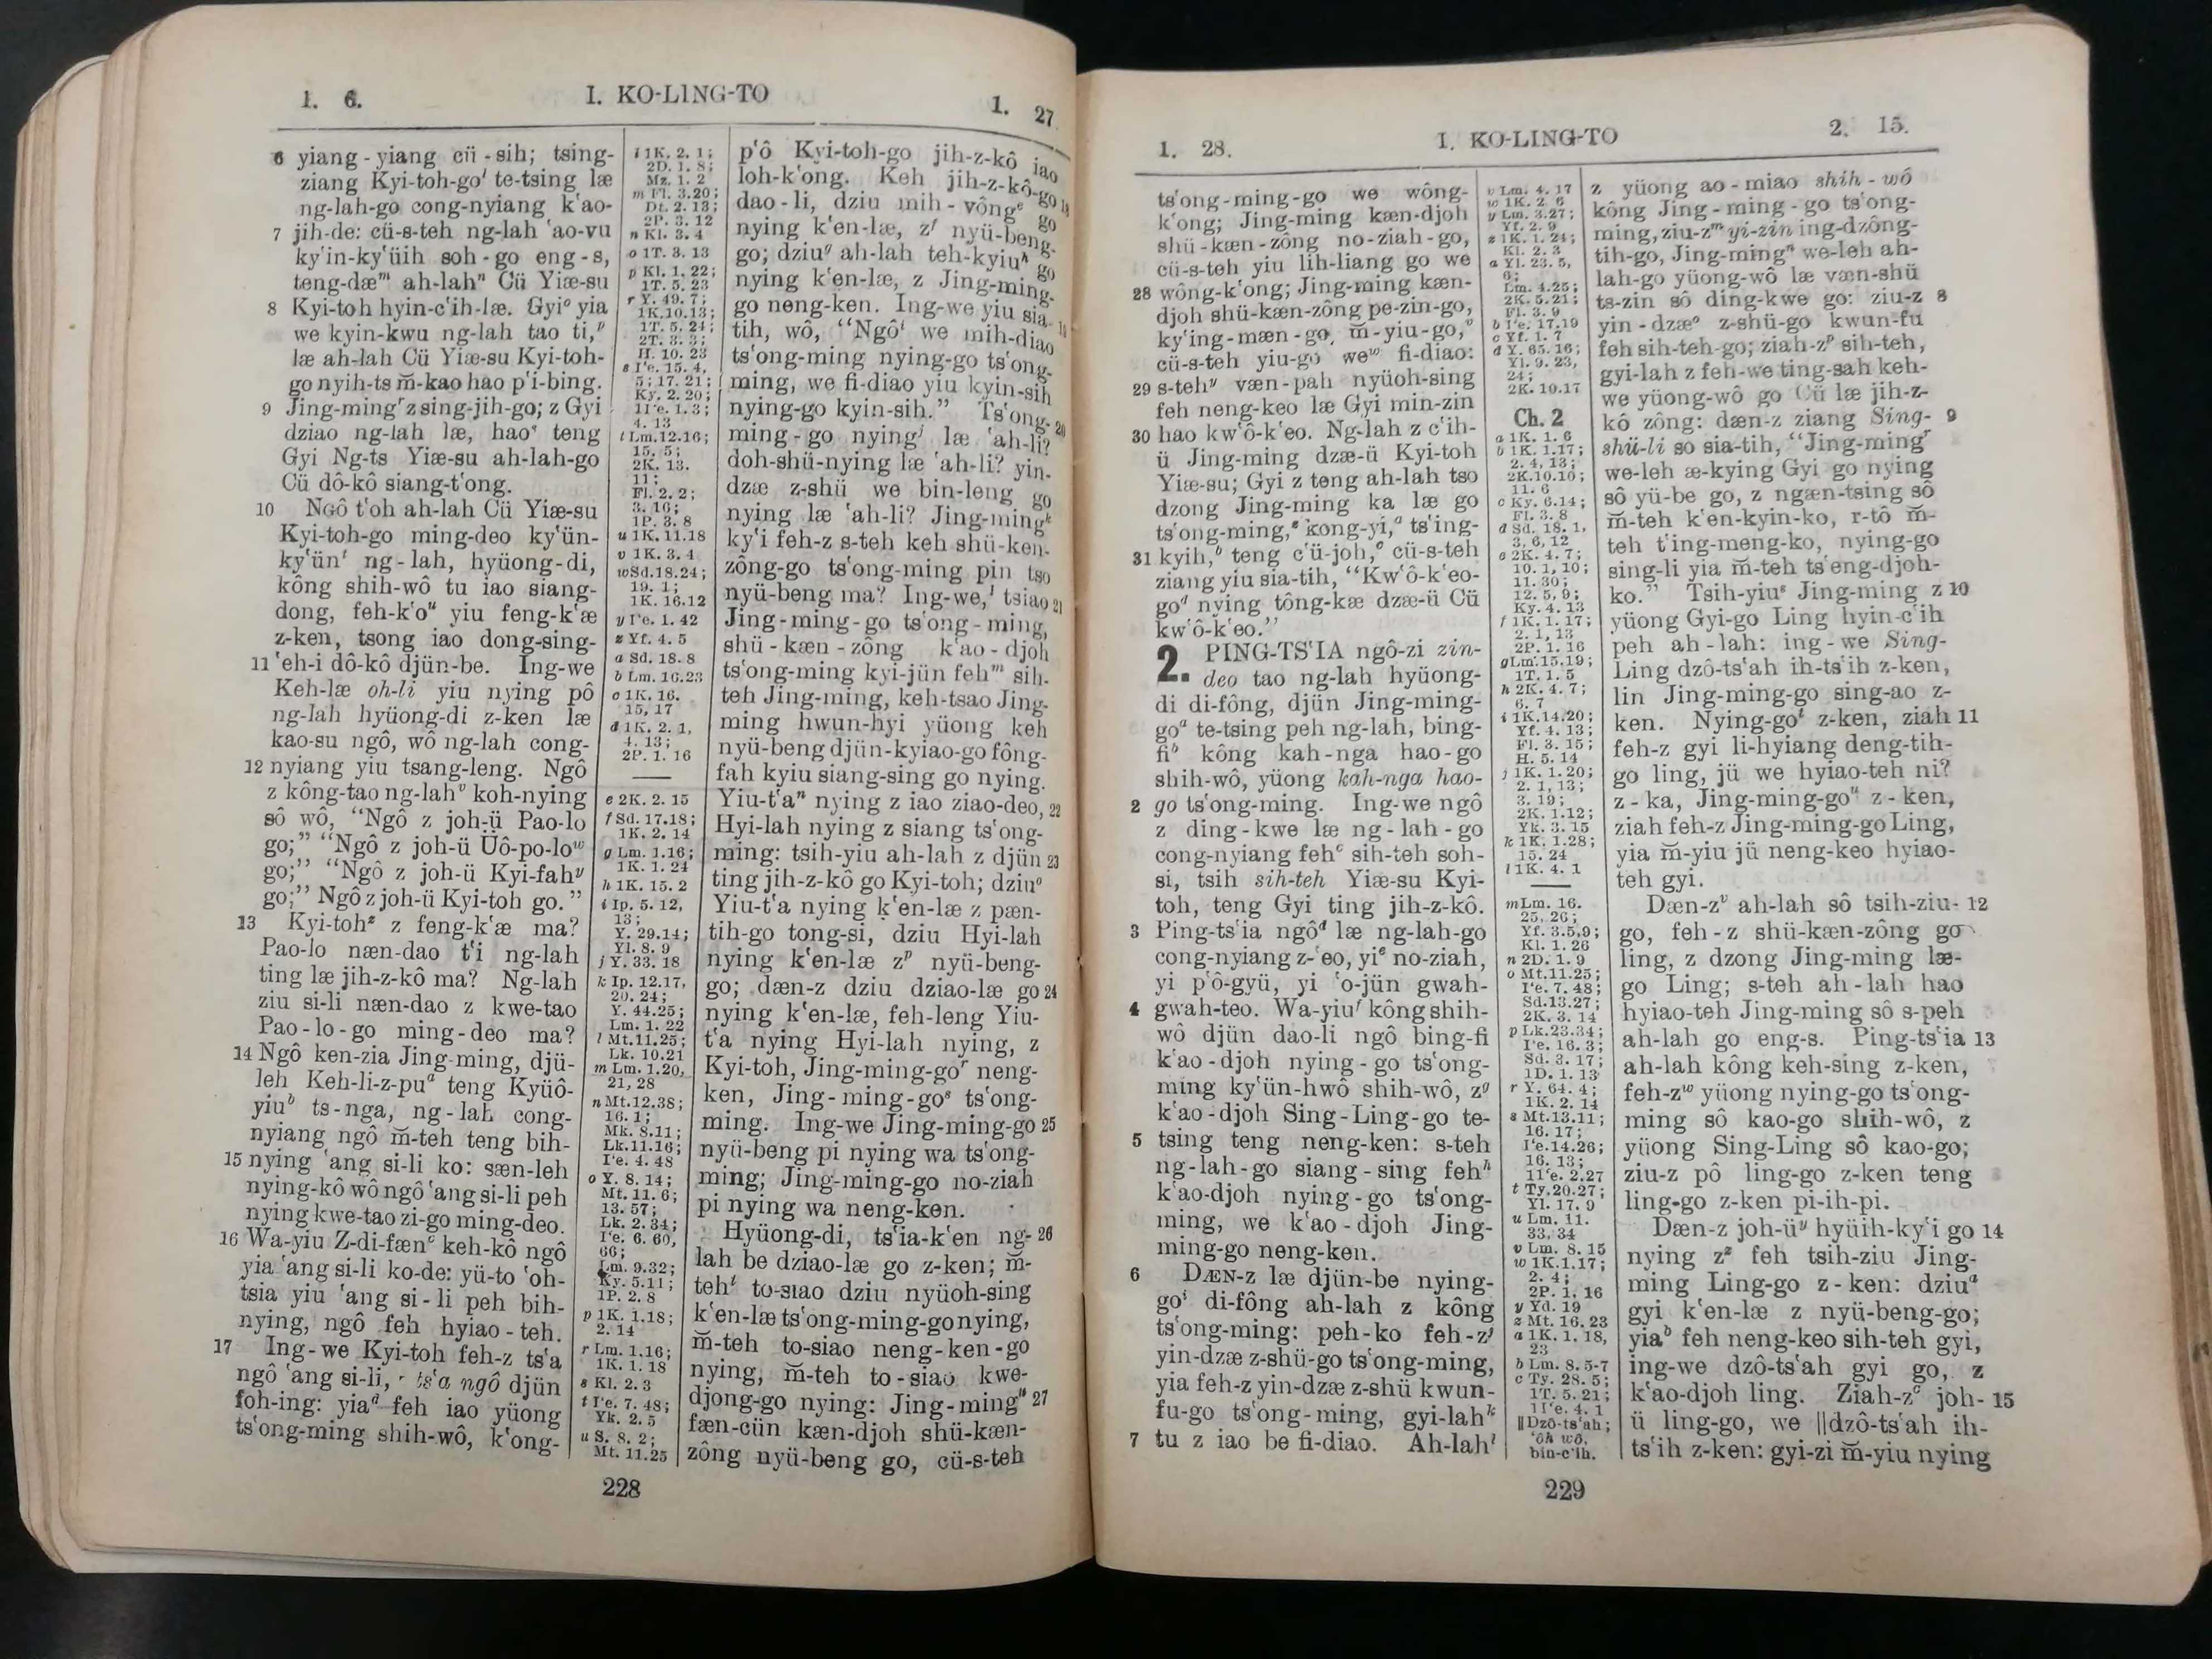 1. 6.
I. KO-LING-TO
1. 27
6 yiang-yiang cü-sih; tsing-
ziang Kyi-toh-goˡ te-tsing læ
ng-lah-go cong-nyiang k'ao-
7 jih-de: cü-s-teh ng-lah 'ao-vu
ky'in-ky'üih soh-go eng-s,
teng-dæᵐ ah-lahⁿ Cü Yiæ-su
8 Kyi-toh hyin-c'ih-læ. Gyiᵒ yia
we kyin-kwu ng-lah tao ti,ᵖ
læ ah-lah Cü Yiæ-su Kyi-toh-
go nyih-ts m̆-kao hao p'i-bing.
9 Jing-mingʳ z sing-jih-go; z Gyi
dziao ng-lah læ, haoˢ teng
Gyi Ng-ts Yiæ-su ah-lah-go
Cü dô-kô siang-t'ong.
10 NGÔ t'oh ah-lah Cü Yiæ-su
Kyi-toh-go ming-deo ky'ün-
ky'ünᵗ ng-lah, hyüong-di,
kông shih-wô tu iao siang-
dong, feh-k'oᵘ yiu feng-k'æ
z-ken, tsong iao dong-sing-
11 'eh-i dô-kô djün-be. Ing-we
Keh-læ oh-li yiu nying pô
ng-lah hyüong-di z-ken læ
kao-su ngô, wô ng-lah cong-
12 nyiang yiu tsang-leng. Ngô
z kông-tao ng-lahᵛ koh-nying
sô wô, “Ngô z joh-ü Pao-lo
go;” “Ngô z joh-ü Üô-po-loʷ
go;” “Ngô z joh-ü Kyi-fahʸ
go;” Ngô z joh-ü Kyi-toh go.”
13 Kyi-tohᶻ z feng-k'æ ma?
Pao-lo næn-dao t'i ng-lah
ting læ jih-z-kô ma? Ng-lah
ziu si-li næn-dao z kwe-tao
Pao-lo-go ming-deo ma?
14 Ngô ken-zia Jing-ming, djü-
leh Keh-li-z-puᵃ teng Kyüô-
yiuᵇ ts-nga, ng-lah cong-
nyiang ngô m̆-teh teng bih-
15 nying 'ang si-li ko: sæn-leh
nying-kô wô ngô 'ang si-li peh
nying kwe-tao zi-go ming-deo.
16 Wa-yiu Z-di-fænᶜ keh-kô ngô
yia 'ang si-li ko-de: yü-to 'oh-
tsia yiu 'ang si-li peh bih-
nying, ngô feh hyiao-teh.
17 Ing-we Kyi-toh feh-z ts'a
ngô 'ang si-li, ts'a ngô djün
foh-ing: yiaᵈ feh iao yüong
ts'ong-ming shih-wô, k'ong-
l 1K. 2. 1;
2D. 1. 8;
Mz. 1. 2
m Fl. 3.20;
Dt. 2. 13;
2P. 3. 12
n Kl. 3. 4
o 1T. 3. 13
p Kl. 1. 22;
1T. 5. 23
r Y. 49. 7;
1K.10.13;
1T. 5. 24;
2T. 3. 3;
H. 10. 23
s I'e. 15. 4,
5; 17. 21;
Ky. 2. 20;
1I'e. 1. 3;
4. 13
t Lm.12.16;
15. 5;
2K. 13.
11;
Fl. 2. 2;
3. 16;
1P. 3. 8
u 1K. 11.18
v 1K. 3. 4
w Sd.18.24;
19. 1;
1K. 16.12
y I'e. 1. 42
z Yf. 4. 5
a Sd. 18. 8
b Lm. 16.23
c 1K. 16.
15, 17
d 1K. 2. 1,
4. 13;
2P. 1. 16
e 2K. 2. 15
f Sd. 17.18;
1K. 2. 14
g Lm. 1.16;
1K. 1. 24
h 1K. 15. 2
i Ip. 5. 12,
13;
Y. 29.14;
Yl. 8. 9
j Y. 33. 18
k Ip. 12.17,
20. 24;
Y. 44.25;
Lm. 1. 22
l Mt.11.25;
Lk. 10.21
m Lm. 1.20,
21, 28
n Mt.12.38;
16. 1;
Mk. 8.11;
Lk.11.16;
I'e. 4. 48
o Y. 8. 14;
Mt. 11. 6;
13. 57;
Lk. 2. 34;
I'e. 6. 60,
66;
Lm. 9.32;
Ky. 5.11;
1P. 2. 8
p 1K. 1.18;
2. 14
r Lm. 1.16;
1K. 1. 18
s Kl. 2. 3
t I'e. 7. 48;
Yk. 2. 5
u S. 8. 2;
Mt. 11.25
p'ô Kyi-toh-go jih-z-kô iao
loh-k'ong. Keh jih-z-kô-go 18
dao-li, dziu mih-vôngᵉ go
nying k'en-læ, zᶠ nyü-beng-
go; dziuᵍ ah-lah teh-kyiuʰ go
nying k'en-læ, z Jing-ming-
go neng-ken. Ing-we yiu sia- 19
tih, wô, “Ngôⁱ we mih-diao
ts'ong-ming nying-go ts'ong-
ming, we fi-diao yiu kyin-sih
nying-go kyin-sih.” Ts'ong- 20
ming-go nyingʲ læ 'ah-li?
doh-shü-nying læ 'ah-li? yin-
dzæ z-shü we bin-leng go
nying læ 'ah-li? Jing-mingᵏ
ky'i feh-z s-teh keh shü-ken-
zông-go ts'ong-ming pin tso
nyü-beng ma? Ing-we,ˡ tsiao 21
Jing-ming-go ts'ong-ming,
shü-kæn-zông k'ao-djoh
ts'ong-ming kyi-jün fehᵐ sih-
teh Jing-ming, keh-tsao Jing-
ming hwun-hyi yüong keh
nyü-beng djün-kyiao-go fông-
fah kyiu siang-sing go nying.
Yiu-t'aⁿ nying z iao ziao-deo, 22
Hyi-lah nying z siang ts'ong-
ming: tsih-yiu ah-lah z djün 23
ting jih-z-kô go Kyi-toh; dziuᵒ
Yiu-t'a nying k'en-læ z pæn-
tih-go tong-si, dziu Hyi-lah
nying k'en-læ zᵖ nyü-beng-
go; dæn-z dziu dziao-læ go 24
nying k'en-læ, feh-leng Yiu-
t'a nying Hyi-lah nying, z
Kyi-toh, Jing-ming-goʳ neng-
ken, Jing-ming-goˢ ts'ong-
ming. Ing-we Jing-ming-go 25
nyü-beng pi nying wa ts'ong-
ming; Jing-ming-go no-ziah
pi nying wa neng-ken.
Hyüong-di, ts'ia-k'en ng- 26
lah be dziao-læ go z-ken; m̆-
tehᵗ to-siao dziu nyüoh-sing
k'en-læ ts'ong-ming-go nying,
m̆-teh to-siao neng-ken-go
nying, m̆-teh to-siao kwe-
djong-go nying: Jing-mingᵘ 27
fæn-cün kæn-djoh shü-kæn-
zông nyü-beng go, cü-s-teh
228
1. 28.
I. KO-LING-TO
2. 15.
ts'ong-ming-go we wông-
k'ong; Jing-ming kæn-djoh
shü-kæn-zông no-ziah-go,
cü-s-teh yiu lih-liang go we
28 wông-k'ong; Jing-ming kæn-
djoh shü-kæn-zông pe-zin-go,
ky'ing-mæn-go, m̆-yiu-go,ᵛ
cü-s-teh yiu-go weʷ fi-diao:
29 s-tehʸ væn-pah nyüoh-sing
feh neng-keo læ Gyi min-zin
30 hao kw'ô-k'eo. Ng-lah z c'ih-
ü Jing-ming dzæ-ü Kyi-toh
Yiæ-su; Gyi z teng ah-lah tso
dzong Jing-ming ka læ go
ts'ong-ming,ᶻ kong-yi,ᵃ ts'ing-
31 kyih,ᵇ teng c'ü-joh,ᶜ cü-s-teh
ziang yiu sia-tih, “Kw'ô-k'eo-
goᵈ nying tông-kæ dzæ-ü Cü
kw'ô-k'eo.”
2. PING-TS'IA ngô-zi zin-
deo tao ng-lah hyüong-
di di-fông, djün Jing-ming-
goᵃ te-tsing peh ng-lah, bing-
fiᵇ kông kah-nga hao-go
shih-wô, yüong kah-nga hao-
2 go ts'ong-ming. Ing-we ngô
z ding-kwe læ ng-lah-go
cong-nyiang fehᶜ sih-teh soh-
si, tsih sih-teh Yiæ-su Kyi-
toh, teng Gyi ting jih-z-kô.
3 Ping-ts'ia ngôᵈ læ ng-lah-go
cong-nyiang z-'eo, yiᵉ no-ziah,
yi p'ô-gyü, yi 'o-jün gwah-
4 gwah-teo. Wa-yiuᶠ kông shih-
wô djün dao-li ngô bing-fi
k'ao-djoh nying-go ts'ong-
ming ky'ün-hwô shih-wô, zᵍ
k'ao-djoh Sing-Ling-go te-
5 tsing teng neng-ken: s-teh
ng-lah-go siang-sing fehʰ
k'ao-djoh nying-go ts'ong-
ming, we k'ao-djoh Jing-
ming-go neng-ken.
6 DÆN-Z læ djün-be nying-
goⁱ di-fông ah-lah z kông
ts'ong-ming: peh-ko feh-zʲ
yin-dzæ z-shü-go ts'ong-ming,
yia feh-z yin-dzæ z-shü kwun-
fu-go ts'ong-ming, gyi-lahᵏ
7 tu z iao be fi-diao. Ah-lahˡ
v Lm. 4. 17
w 1K. 2. 6
y Lm. 3.27;
Yf. 2. 9
z 1K. 1. 24;
Kl. 2. 3
a Yl. 23. 5,
6;
Lm. 4.25;
2K. 5.21;
Fl. 3. 9
b I'e. 17.19
c Yf. 1. 7
d Y. 65. 16;
Yl. 9. 23,
24;
2K. 10.17
Ch. 2
a 1K. 1. 6
b 1K. 1.17;
2. 4, 13;
2K.10.10;
11. 6
c Ky. 6.14;
Fl. 3. 8
d Sd. 18. 1,
3, 6, 12
e 2K. 4. 7;
10. 1, 10;
11. 30;
12. 5, 9;
Ky. 4. 13
f 1K. 1. 17;
2. 1, 13
2P. 1. 16
g Lm.15.19;
1T. 1. 5
h 2K. 4. 7;
6. 7
i 1K.14.20;
Yf. 4. 13;
Fl. 3. 15;
H. 5. 14
j 1K. 1.20;
2. 1, 13;
3. 19;
2K. 1.12;
Yk. 3. 15
k 1K. 1.28;
15. 24
l 1K. 4. 1
m Lm. 16.
25, 26;
Yf. 3.5,9;
Kl. 1. 26
n 2D. 1. 9
o Mt.11.25;
I'e. 7. 48;
Sd.13.27;
2K. 3. 14
p Lk.23.34;
I'e. 16. 3;
Sd. 3. 17;
1D. 1. 13
r Y. 64. 4;
1K. 2. 14
s Mt.13.11;
16. 17;
I'e.14.26;
16. 13;
1I'e. 2.27
t Ty.20.27;
Yl. 17. 9
u Lm. 11.
33, 34
v Lm. 8. 15
w 1K.1.17;
2. 4;
2P. 1. 16
y Yd. 19
z Mt. 16. 23
a 1K. 1. 18,
23
b Lm. 8. 5-7
c Ty. 28. 5;
1T. 5. 21;
1I'e. 4. 1
||Dzô-ts'ah;
'ôh wô,
bin-c'ih.
z yüong ao-miao shih-wô
kông Jing-ming-go ts'ong-
ming, ziu-zᵐ yi-zin ing-dzông-
tih-go, Jing-mingⁿ we-leh ah-
lah-go yüong-wô læ væn-shü
ts-zin sô ding-kwe go: ziu-z 8
yin-dzæᵒ z-shü-go kwun-fu
feh sih-teh-go; ziah-zᵖ sih-teh,
gyi-lah z feh-we ting-sah keh-
we yüong-wô go Cü læ jih-z-
kô zông: dæn-z ziang Sing- 9
shü-li so sia-tih, “Jing-mingʳ
we-leh æ-kying Gyi go nying
sô yü-be go, z ngæn-tsing sô
m̆-teh k'en-kyin-ko, r-tô m̆-
teh t'ing-meng-ko, nying-go
sing-li yia m̆-teh ts'eng-djoh-
ko.” Tsih-yiuˢ Jing-ming z 10
yüong Gyi-go Ling hyin-c'ih
peh ah-lah: ing-we Sing-
Ling dzô-ts'ah ih-ts'ih z-ken,
lin Jing-ming-go sing-ao z-
ken. Nying-goᵗ z-ken, ziah 11
feh-z gyi li-hyiang deng-tih-
go ling, jü we hyiao-teh ni?
z-ka, Jing-ming-goᵘ z-ken,
ziah feh-z Jing-ming-go Ling,
yia m̆-yiu jü neng-keo hyiao-
teh gyi.
Dæn-zᵛ ah-lah sô tsih-ziu- 12
go, feh-z shü-kæn-zông go
ling, z dzong Jing-ming læ-
go Ling; s-teh ah-lah hao
hyiao-teh Jing-ming sô s-peh
ah-lah go eng-s. Ping-ts'ia 13
ah-lah kông keh-sing z-ken,
feh-zʷ yüong nying-go ts'ong-
ming sô kao-go shih-wô, z
yüong Sing-Ling sô kao-go;
ziu-z pô ling-go z-ken teng
ling-go z-ken pi-ih-pi.
Dæn-z joh-üʸ hyüih-ky'i go 14
nying zᶻ feh tsih-ziu Jing-
ming Ling-go z-ken: dziuᵃ
gyi k'en-læ z nyü-beng-go;
yiaᵇ feh neng-keo sih-teh gyi,
ing-we dzô-ts'ah gyi go, z
k'ao-djoh ling. Ziah-zᶜ joh- 15
ü ling-go, we ||dzô-ts'ah ih-
ts'ih z-ken: gyi-zi m̆-yiu nying
229